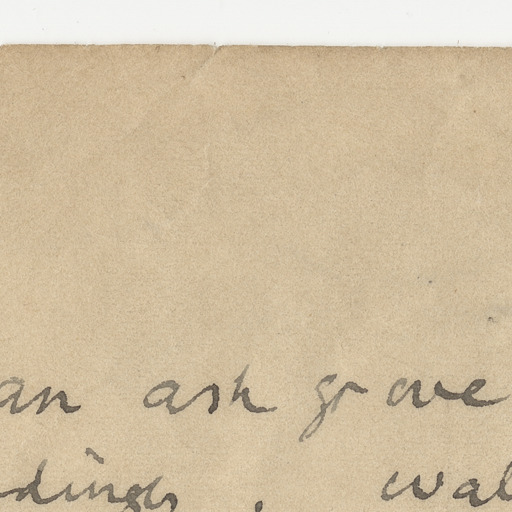 an ask grove
dings, wal